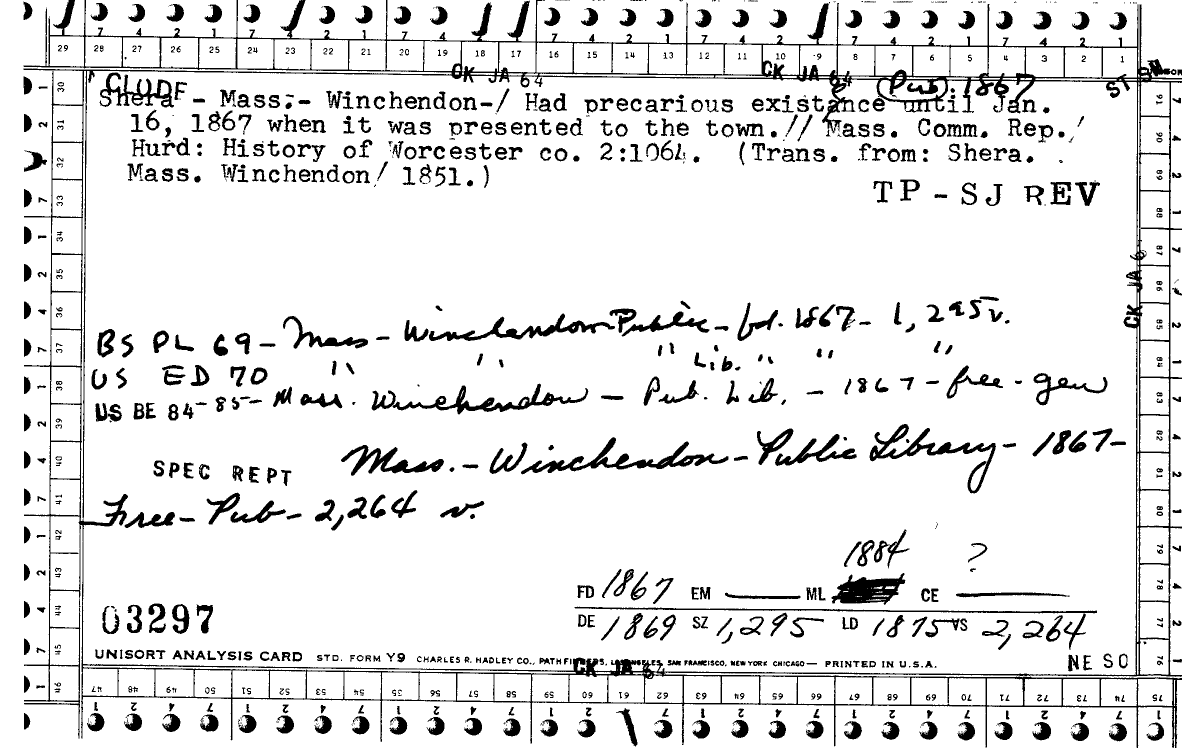 29 28 27 26 25 24 23 22 21 20 19 18 17 16 15 14 13 12 11 10 9 8 7 6 5 4 3 2 1
CK JA 64 CK JA 64 (Pub). 1867
CLUDE
Shera - Mass.- Winchendon-/ Had precarious existance until Jan.
16, 1867 when it was presented to the town.// Mass. Comm. Rep./
Hurd: History of Worcester co. 2:1064. (Trans. from: Shera.
Mass. Winchendon/ 1851.)
TP - SJ REV
CK JA 6
BS PL 69 - Mass - Winchendon Public - fd. 1867 - 1,295 v.
US ED 70 " " " Lib. " " "
US BE 84-85 - Mass. Winchendon - Pub. Lib. - 1867 - free - gen
SPEC REPT Mass. - Winchendon - Public Library - 1867 -
Free - Pub - 2,264 v.
1884 ?
FD 1867 EM ML CE
DE 1869 SZ 1,295 LD 1875 VS 2,264
03297
UNISORT ANALYSIS CARD STD. FORM Y9 CHARLES R. HADLEY CO., PATHFINDERS, LOS ANGELES, SAN FRANCISCO, NEW YORK CHICAGO — PRINTED IN U.S.A. NE SO
CK JA 64
47 48 49 50 51 52 53 54 55 56 57 58 59 60 61 62 63 64 65 66 67 68 69 70 71 72 73 74 75